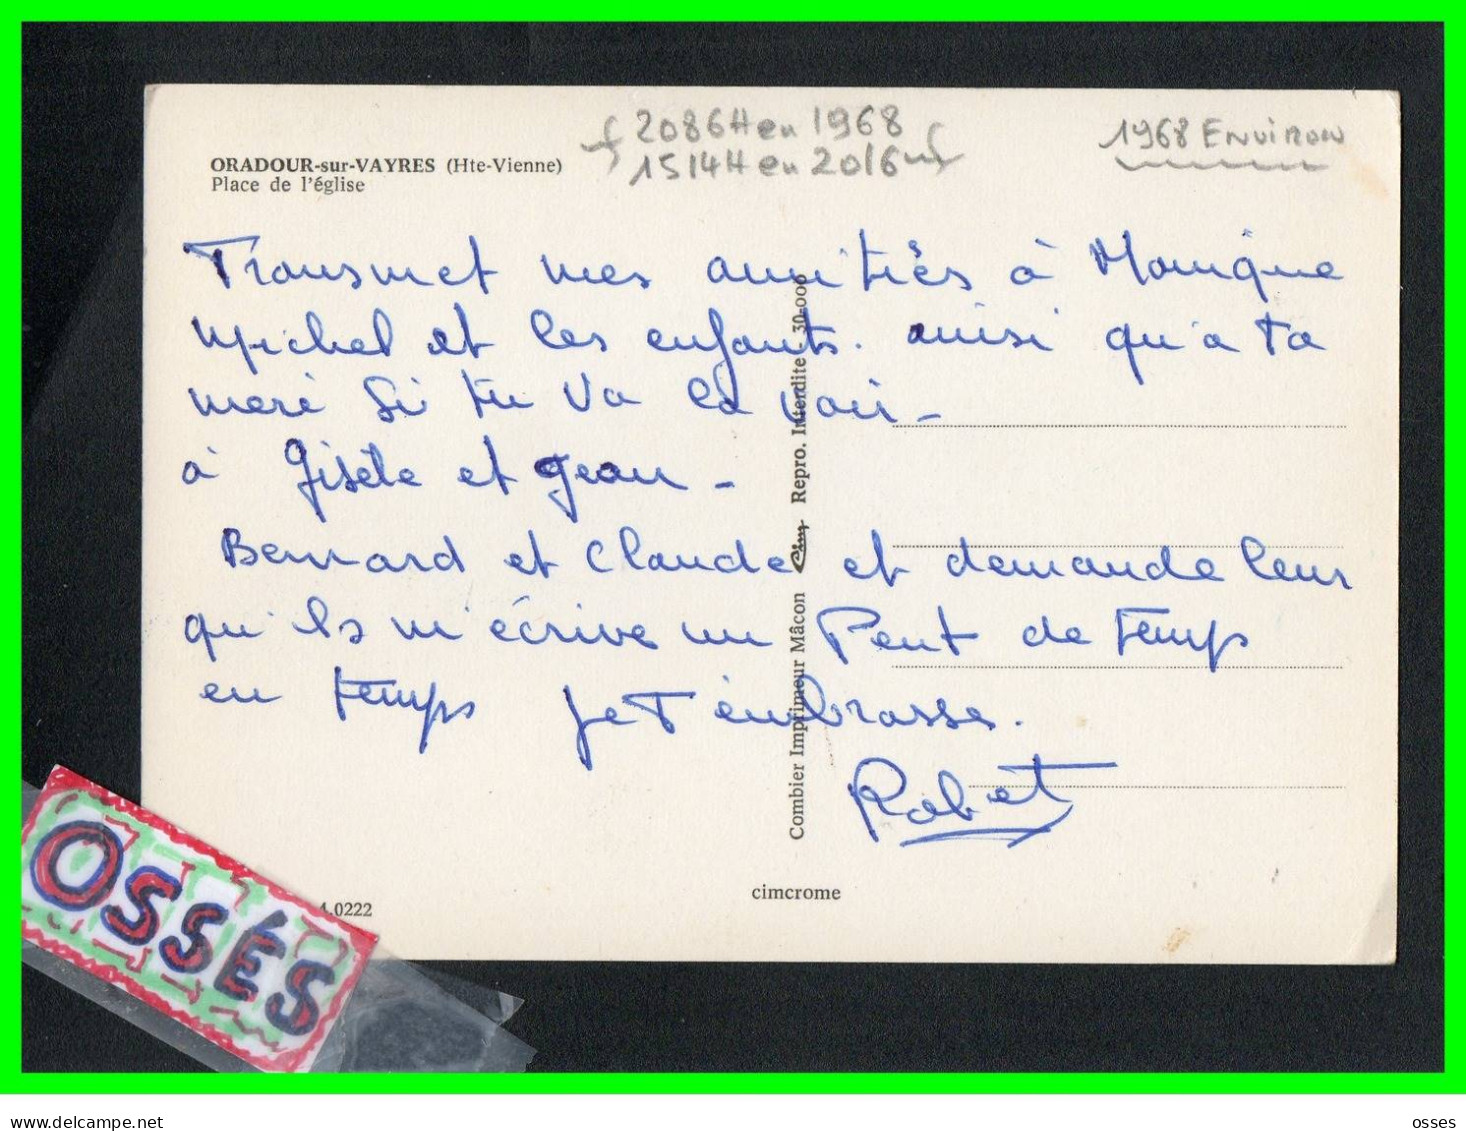 2086H en 1968
1514H en 2016
1968 ENVIRON
ORADOUR-sur-VAYRES (Hte-Vienne)
Place de l'église
Transmet mes amitiés à Monique
Michel et les enfants. ainsi qu'a ta
meré Si tu Va la voir -
a Gisèle et Jean -
Bernard et Claude et demande leur
qu'ils m'écrive un Peut de temps
en temps Je T'embrasse.
Robert
Combier Imprimeur Mâcon Repro. Interdite - 30-000
cimcrome
4.0222
OSSÉS
delcampe.net
osses